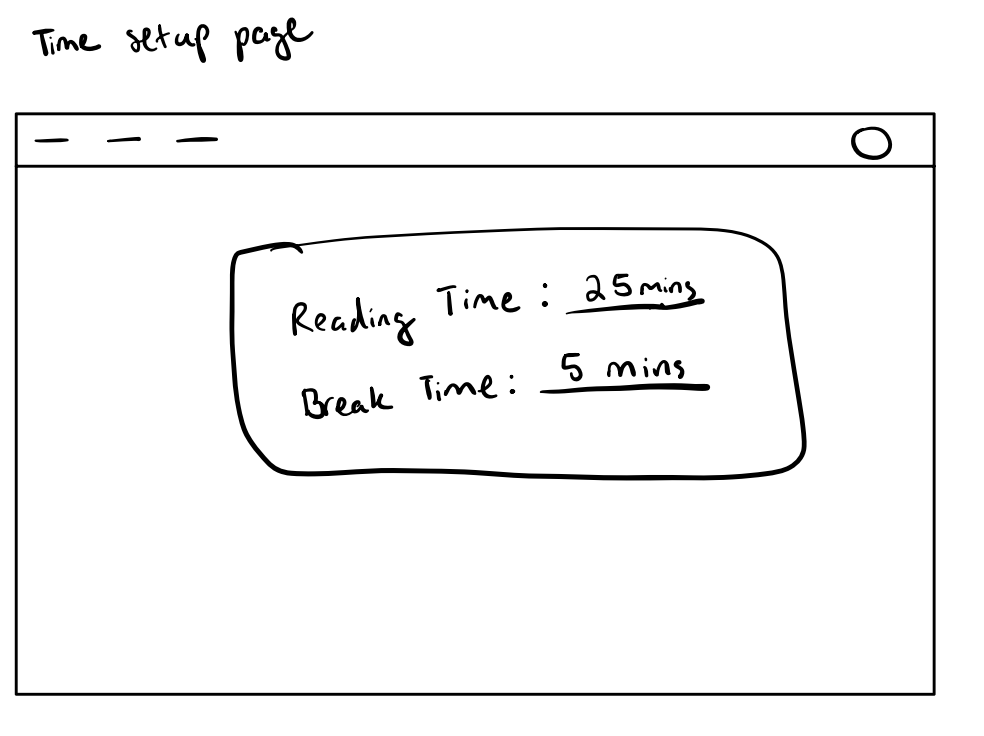 Time setup page
Reading Time : 25 mins
Break Time : 5 mins